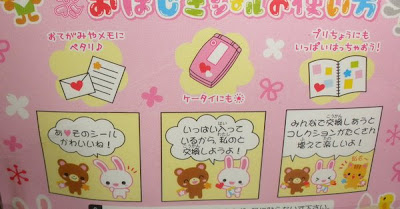 おはじきシールのお使い方
おてがみやメモに
ペタリ♪
ケータイにも
プリちょうにも
いっぱいはっちゃおう!
あ♥そのシール
かわいいね!
いっぱい入って
いるから、私のと
交換しようよ!
みんなで交換しあうと
コレクションがたくさん
増えて楽しいよ!